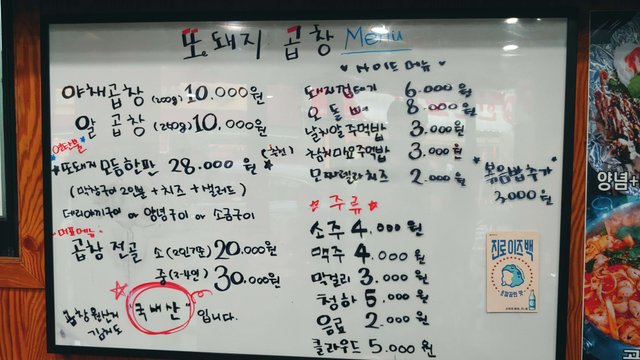 또돼지 곱창 Menu
야채곱창 (200g) 10.000원
알 곱창 (250g) 10.000원
또돼지 모듬한판 28.000원
(추천)
(막창구이 2인분 + 치즈 + 샐러드)
데리야끼구이 or 양념구이 or 소금구이
곱창 전골 소(2인기준) 20.000원
중(3-4인) 30.000원
곱창 원산지
김치도
"국내산" 입니다.
사이드 메뉴
돼지껍데기 6.000원
오돌뼈 8.000원
날치알주먹밥 3.000원
참치마요주먹밥 3.000원
모짜렐라치즈 2.000원
볶음밥추가
3.000원
주류
소주 4.000원
맥주 4.000원
막걸리 3.000원
청하 5.000원
음료 2.000원
클라우드 5.000원
진로이즈백
양념+